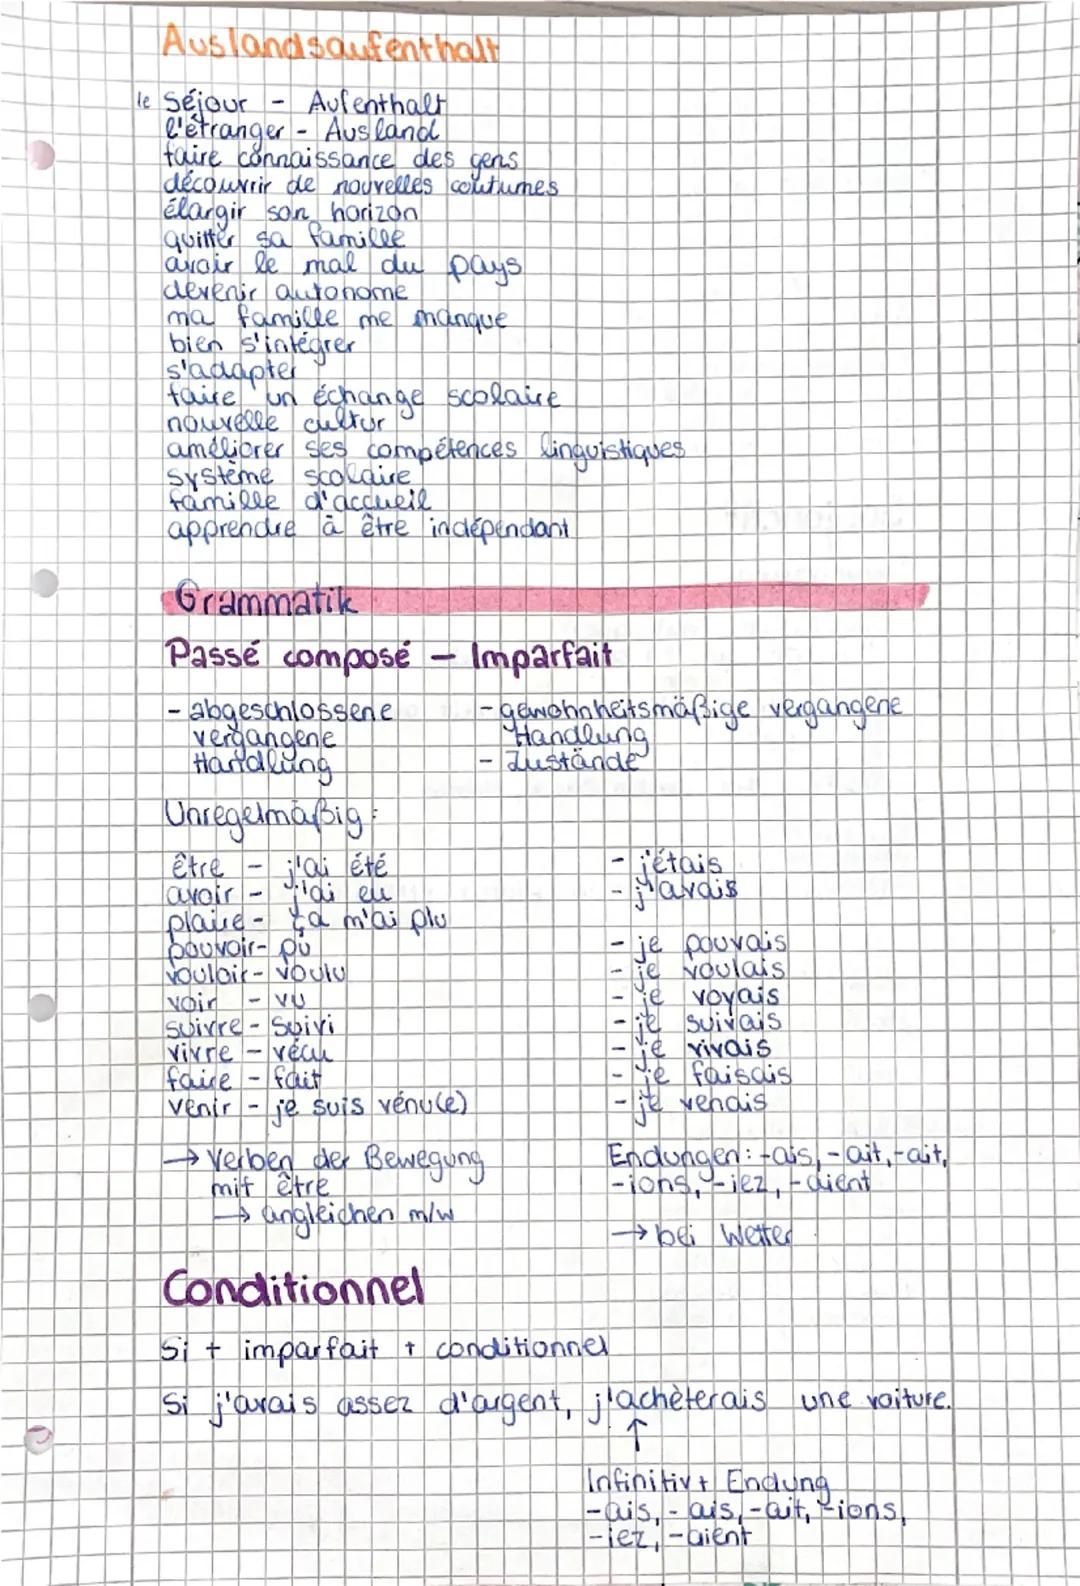 Auslandsaufenthalt
le Séjour - Aufenthalt
l'étranger - Ausland
faire connaissance des gens
découvrir de nouvelles coutumes
élargir son horizon
quitter sa famille
avoir le mal du pays
devenir autonome
ma famille me manque
bien s'intégrer
s'adapter
faire un échange scolaire
nouvelle cultur
améliorer ses compétences linguistiques
système scolaire
famille d'accueil
apprendre à être indépendant
Grammatik
Passé composé - Imparfait
- abgeschlossene - gewohnheitsmäßige vergangene
vergangene Handlung
Handlung - Zustände
Unregelmäßig:
être - j'ai été - j'étais
avoir - j'ai eu - j'avais
plaire - ça m'ai plu
pouvoir - pu - je pouvais
vouloir - voulu - je voulais
voir - vu - je voyais
suivre - suivi - je suivais
vivre - vécu - je vivais
faire - fait - je faisais
venir - je suis vénu(e) - je venais
→ Verben der Bewegung Endungen: -ais, -ait, -ait,
mit être -ions, -iez, -aient
→ angleichen m/w
→ bei Wetter
Conditionnel
Si + imparfait + conditionnel
Si j'avais assez d'argent, j'achèterais une voiture.
↑
Infinitiv + Endung
-ais, -ais, -ait, -ions,
-iez, -aient